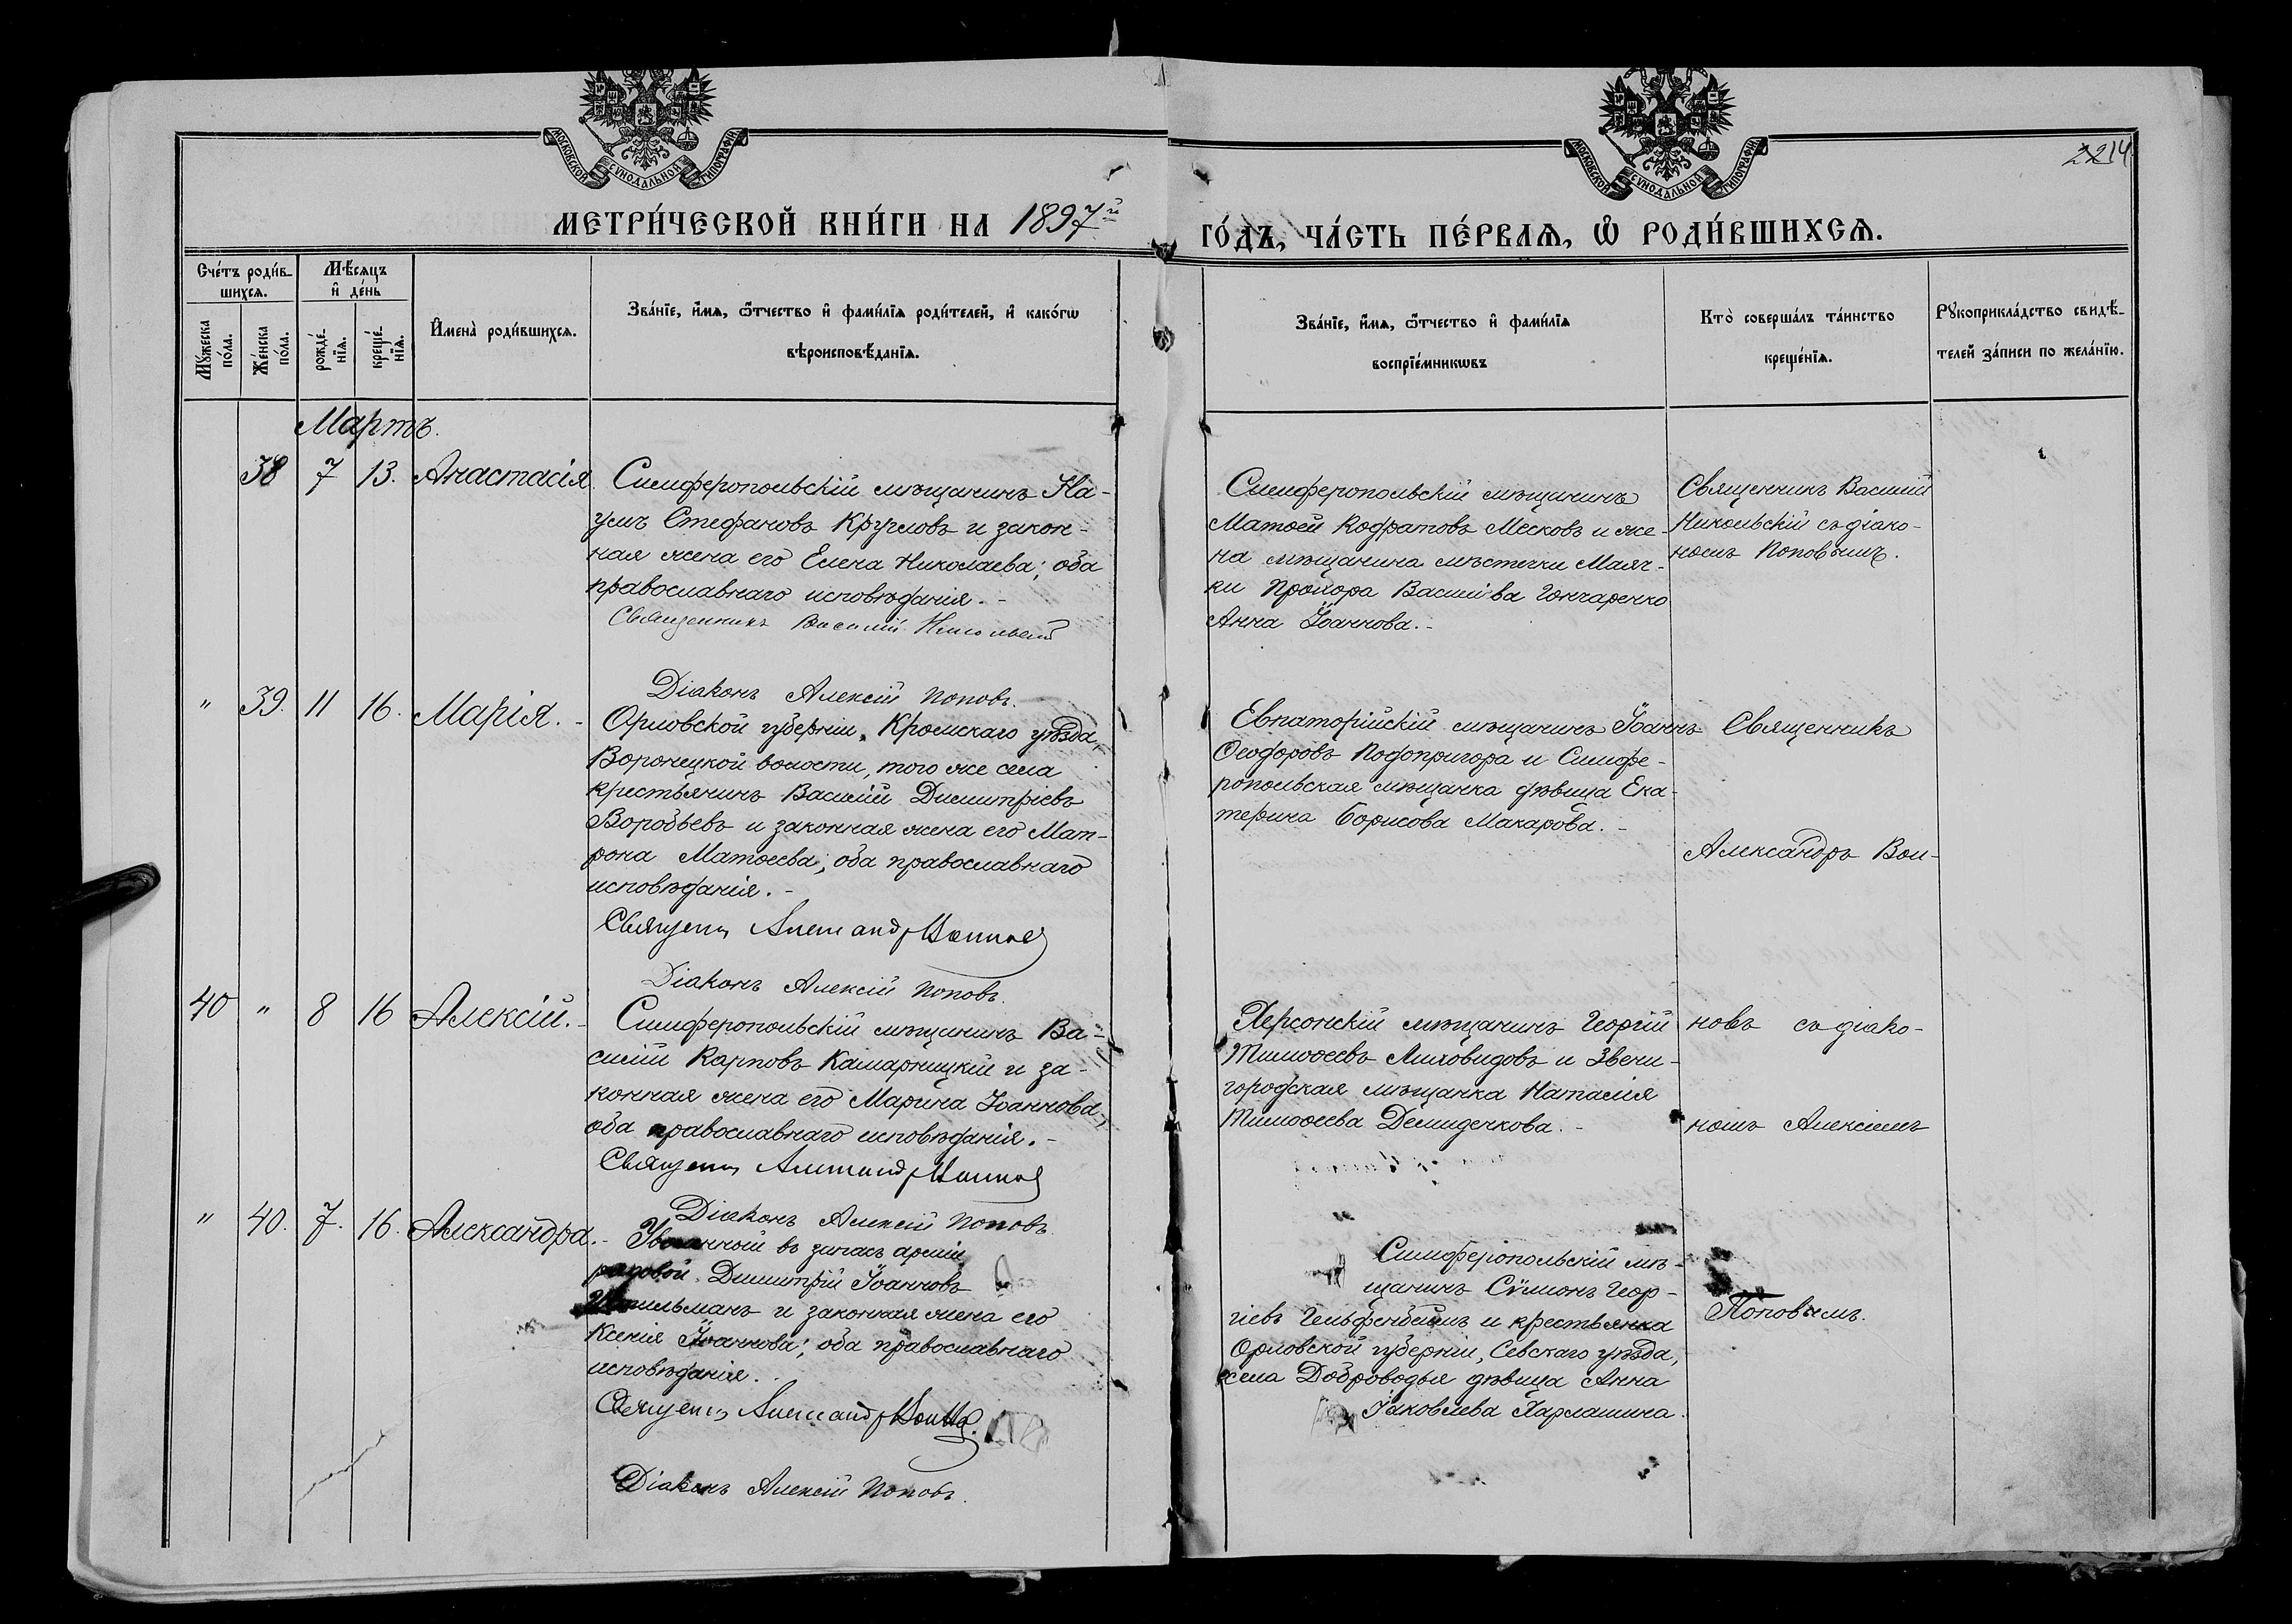 МОСКОВСКОЙ СѴНОДАЛЬНОЙ ТИПОГРАФІИ
МОСКОВСКОЙ СѴНОДАЛЬНОЙ ТИПОГРАФІИ
2214
МЕТРИ́ЧЕСКОЙ КНИ́ГИ НА 1897й
ГО́ДЪ, ЧА́СТЬ ПЕ́РВАѦ, Ѡ РОДИ́ВШИХСѦ.
Сче́тъ роди́в-
шихсѧ.
Мѣ́сѧцъ
и҆ де́нь
Мꙋ́жеска
по́ла.
Же́нска
по́ла.
рожде́-
нїѧ.
креще́-
нїѧ.
И҆мена̀ роди́вшихсѧ.
Зва́нїе, и҆́мѧ, ѻ҆́тчество и҆ фами́лїѧ роди́телей, и҆ како́гѡ
вѣроисповѣ́данїѧ.
Зва́нїе, и҆́мѧ, ѻ҆́тчество и҆ фами́лїѧ
воспрїе́мникѡвъ
Кто̀ соверша́лъ та́инство
креще́нїѧ.
Рꙋкоприкла́дство свидѣ́-
телей за́писи по жела́нїю.
Мартъ.
38 7 13. Анастасія.
Симферопольскій мѣщанинъ На-
умъ Стефановъ Кругловъ и закон-
ная жена его Елена Николаева; оба
православнаго исповѣданія. -
Священникъ Василій Никольскій
Діаконъ Алексій Поповъ.
Симферопольскій мѣщанинъ
Матѳей Кодратовъ Месковъ и же-
на мѣщанина мѣстечки Маяч-
ки Прохора Васильева Гончаренко
Анна Іоаннова. -
Священникъ Василій
Никольскій съ діако-
номъ Поповымъ.
" 39. 11 16. Марія. -
Орловской губерніи, Кромскаго уѣзда,
Воронецкой волости, того же села
крестьянинъ Василій Димитріевъ
Воробьевъ и законная жена его Мат-
рона Матѳеева; оба православнаго
исповѣданія. -
Священ Александр Воинов
Діаконъ Алексій Поповъ.
Евпаторійскій мѣщанинъ Іоаннъ
Ѳеодоровъ Подопригора и Симфе-
ропольская мѣщанка дѣвица Ека-
терина Борисова Макарова. -
Священникъ
Александръ Вои-
40 " 8 16 Алексій. -
Симферопольскій мѣщанинъ Ва-
силій Карповъ Камарницкій и за-
конная жена его Марина Іоаннова;
оба православнаго исповѣданія. -
Священ Александр Воинов
Діаконъ Алексій Поповъ.
Херсонскій мѣщанинъ Георгій
Тимоѳеевъ Лиховидовъ и Звени-
городская мѣщанка Наталія
Тимоѳеева Демиденкова. -
новъ съ діако-
номъ Алексіемъ
" 40. 7. 16. Александра. -
въ запасъ арміи
рядовой Димитрій Іоанновъ
и законная жена его
Ксенія Іоаннова; оба православнаго
исповѣданія. -
Священ Александр Воинов
Діаконъ Алексій Поповъ.
Симферіопольскій мѣ-
щанинъ Сѵмонъ Геор-
гіевъ Гельфенбейнъ и крестьянка
Орловской губерніи, Севскаго уѣзда,
села Доброводья дѣвица Анна
Іаковлева Харлашина.
Поповымъ.